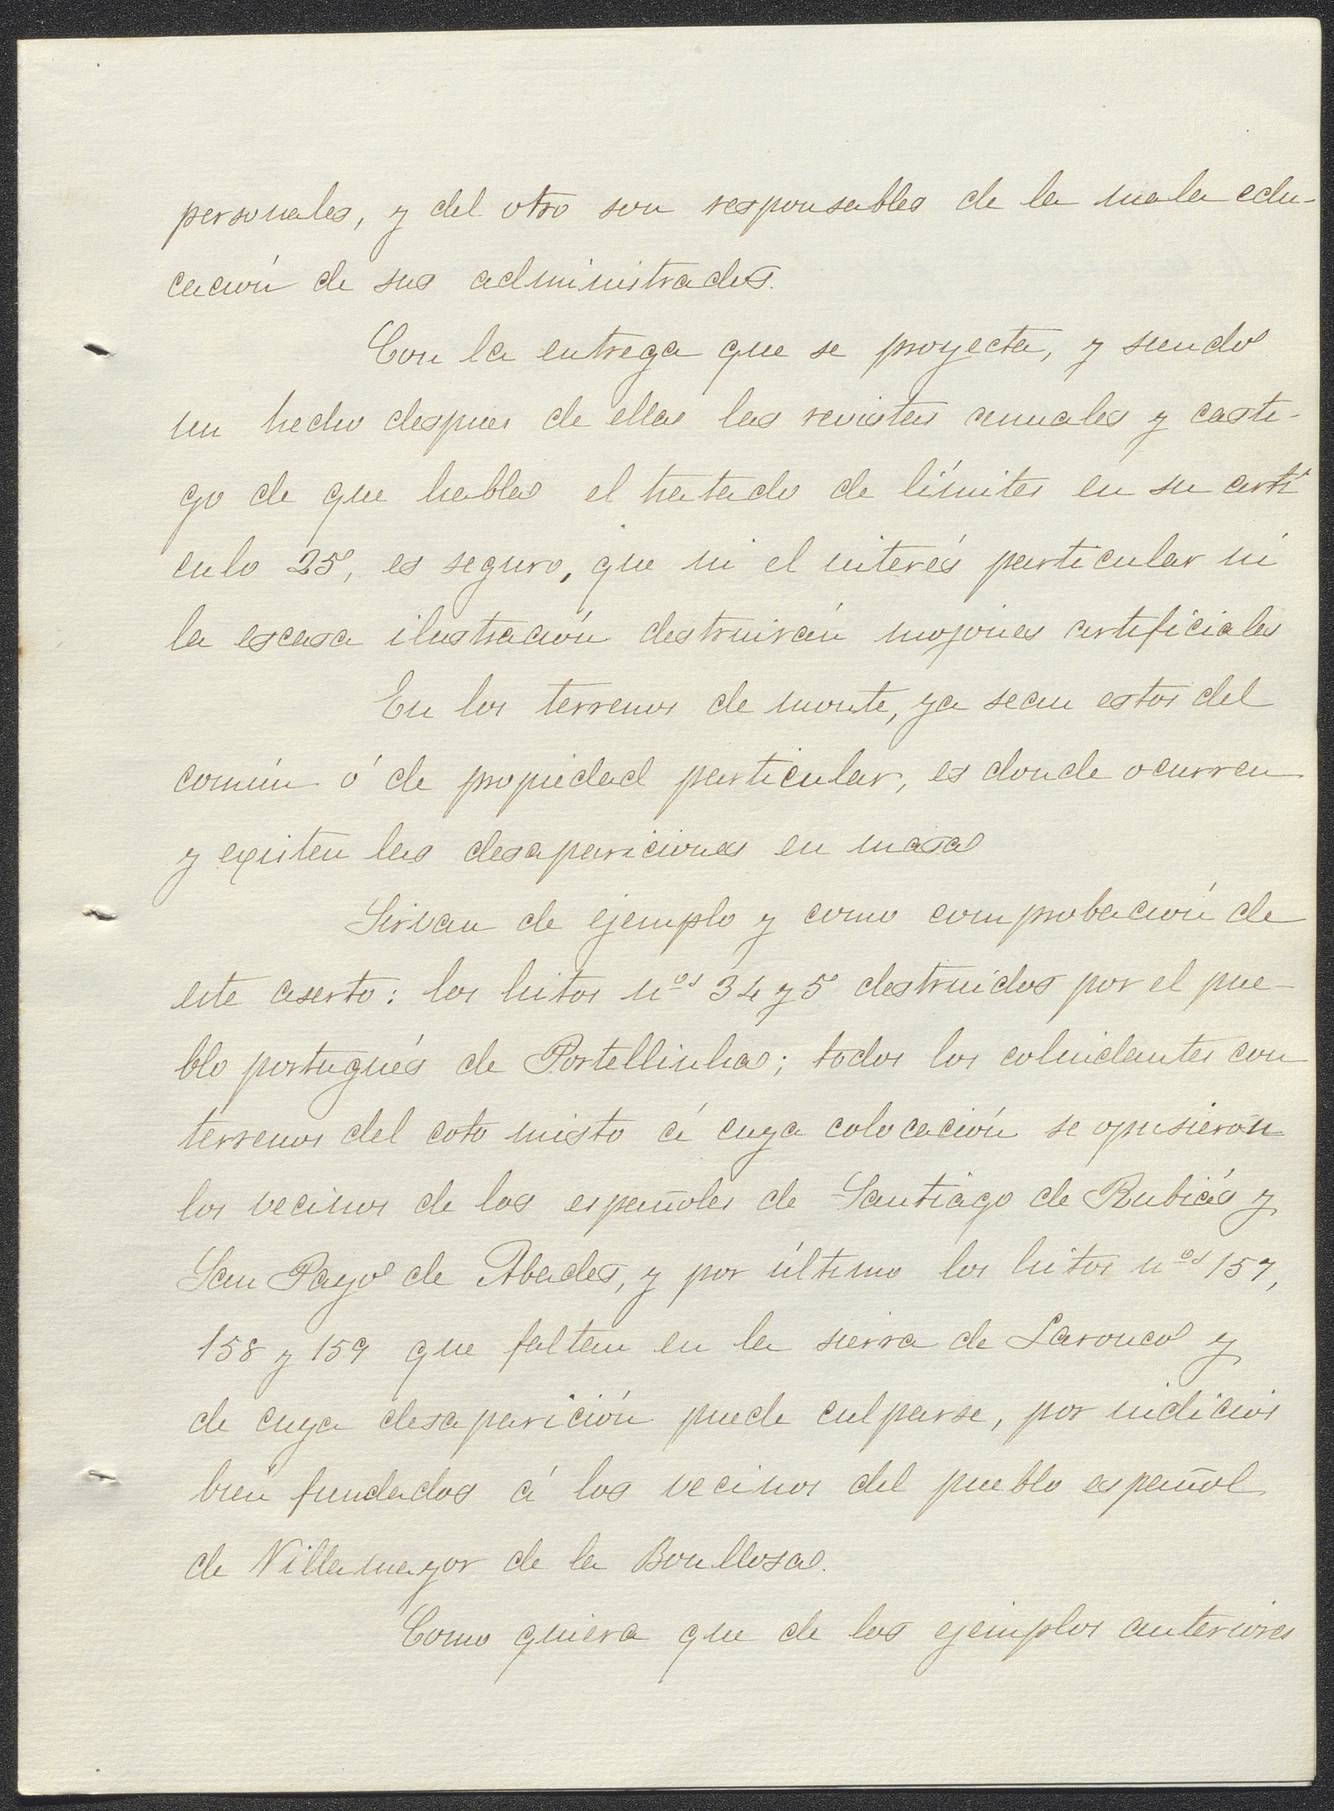 personales, y del otro son responsables de la mala edu-
cación de sus administrados.
Con la entrega que se proyecta, y siendo
un hecho despues de ellas las revistas anuales y casti-
go de que habla el tratado de límites en su artí
culo 25º, es seguro, que ni el interés particular ni
la escasa ilustración destruirán mojones artificiales
En los terrenos de monte, ya sean estos del
común ó de propiedad particular, es donde ocurren
y existen las desapariciones en masa
Sirvan de ejemplo y como comprobación de
este aserto: los hitos nos 3 4 y 5 destruidos por el pue-
blo portugués de Portellinha; todos los colindantes con
terrenos del coto misto á cuya colocación se opusieron
los vecinos de los españoles de Santiago de Rubiás y
San Payo de Abades, y por último los hitos nos 157,
158 y 159 que faltan en la sierra de Larouco y
de cuya desaparición puede culparse, por indicios
bien fundados á los vecinos del pueblo español
de Villamayor de la Boullosa.
Como quiera que de los ejemplos anteriores